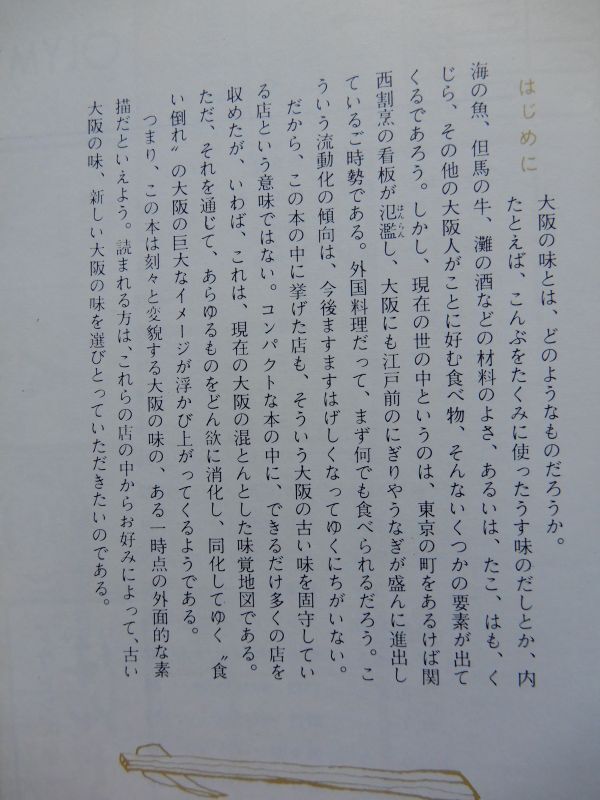 はじめに
大阪の味とは、どのようなものだろうか。
たとえば、こんぶをたくみに使ったうす味のだしとか、内
海の魚、但馬の牛、灘の酒などの材料のよさ、あるいは、たこ、はも、く
じら、その他の大阪人がことに好む食べ物、そんないくつかの要素が出て
くるであろう。しかし、現在の世の中というのは、東京の町をあるけば関
西割烹の看板が氾濫し、大阪にも江戸前のにぎりやうなぎが盛んに進出し
ているご時勢である。外国料理だって、まず何でも食べられるだろう。こ
ういう流動化の傾向は、今後ますますはげしくなってゆくにちがいない。
だから、この本の中に挙げた店も、そういう大阪の古い味を固守してい
る店という意味ではない。コンパクトな本の中に、できるだけ多くの店を
収めたが、いわば、これは、現在の大阪の混とんとした味覚地図である。
ただ、それを通じて、あらゆるものをどん欲に消化し、同化してゆく〝食
い倒れ〟の大阪の巨大なイメージが浮かび上がってくるようである。
つまり、この本は刻々と変貌する大阪の味の、ある一時点の外面的な素
描だといえよう。読まれる方は、これらの店の中からお好みによって、古い
大阪の味、新しい大阪の味を選びとっていただきたいのである。